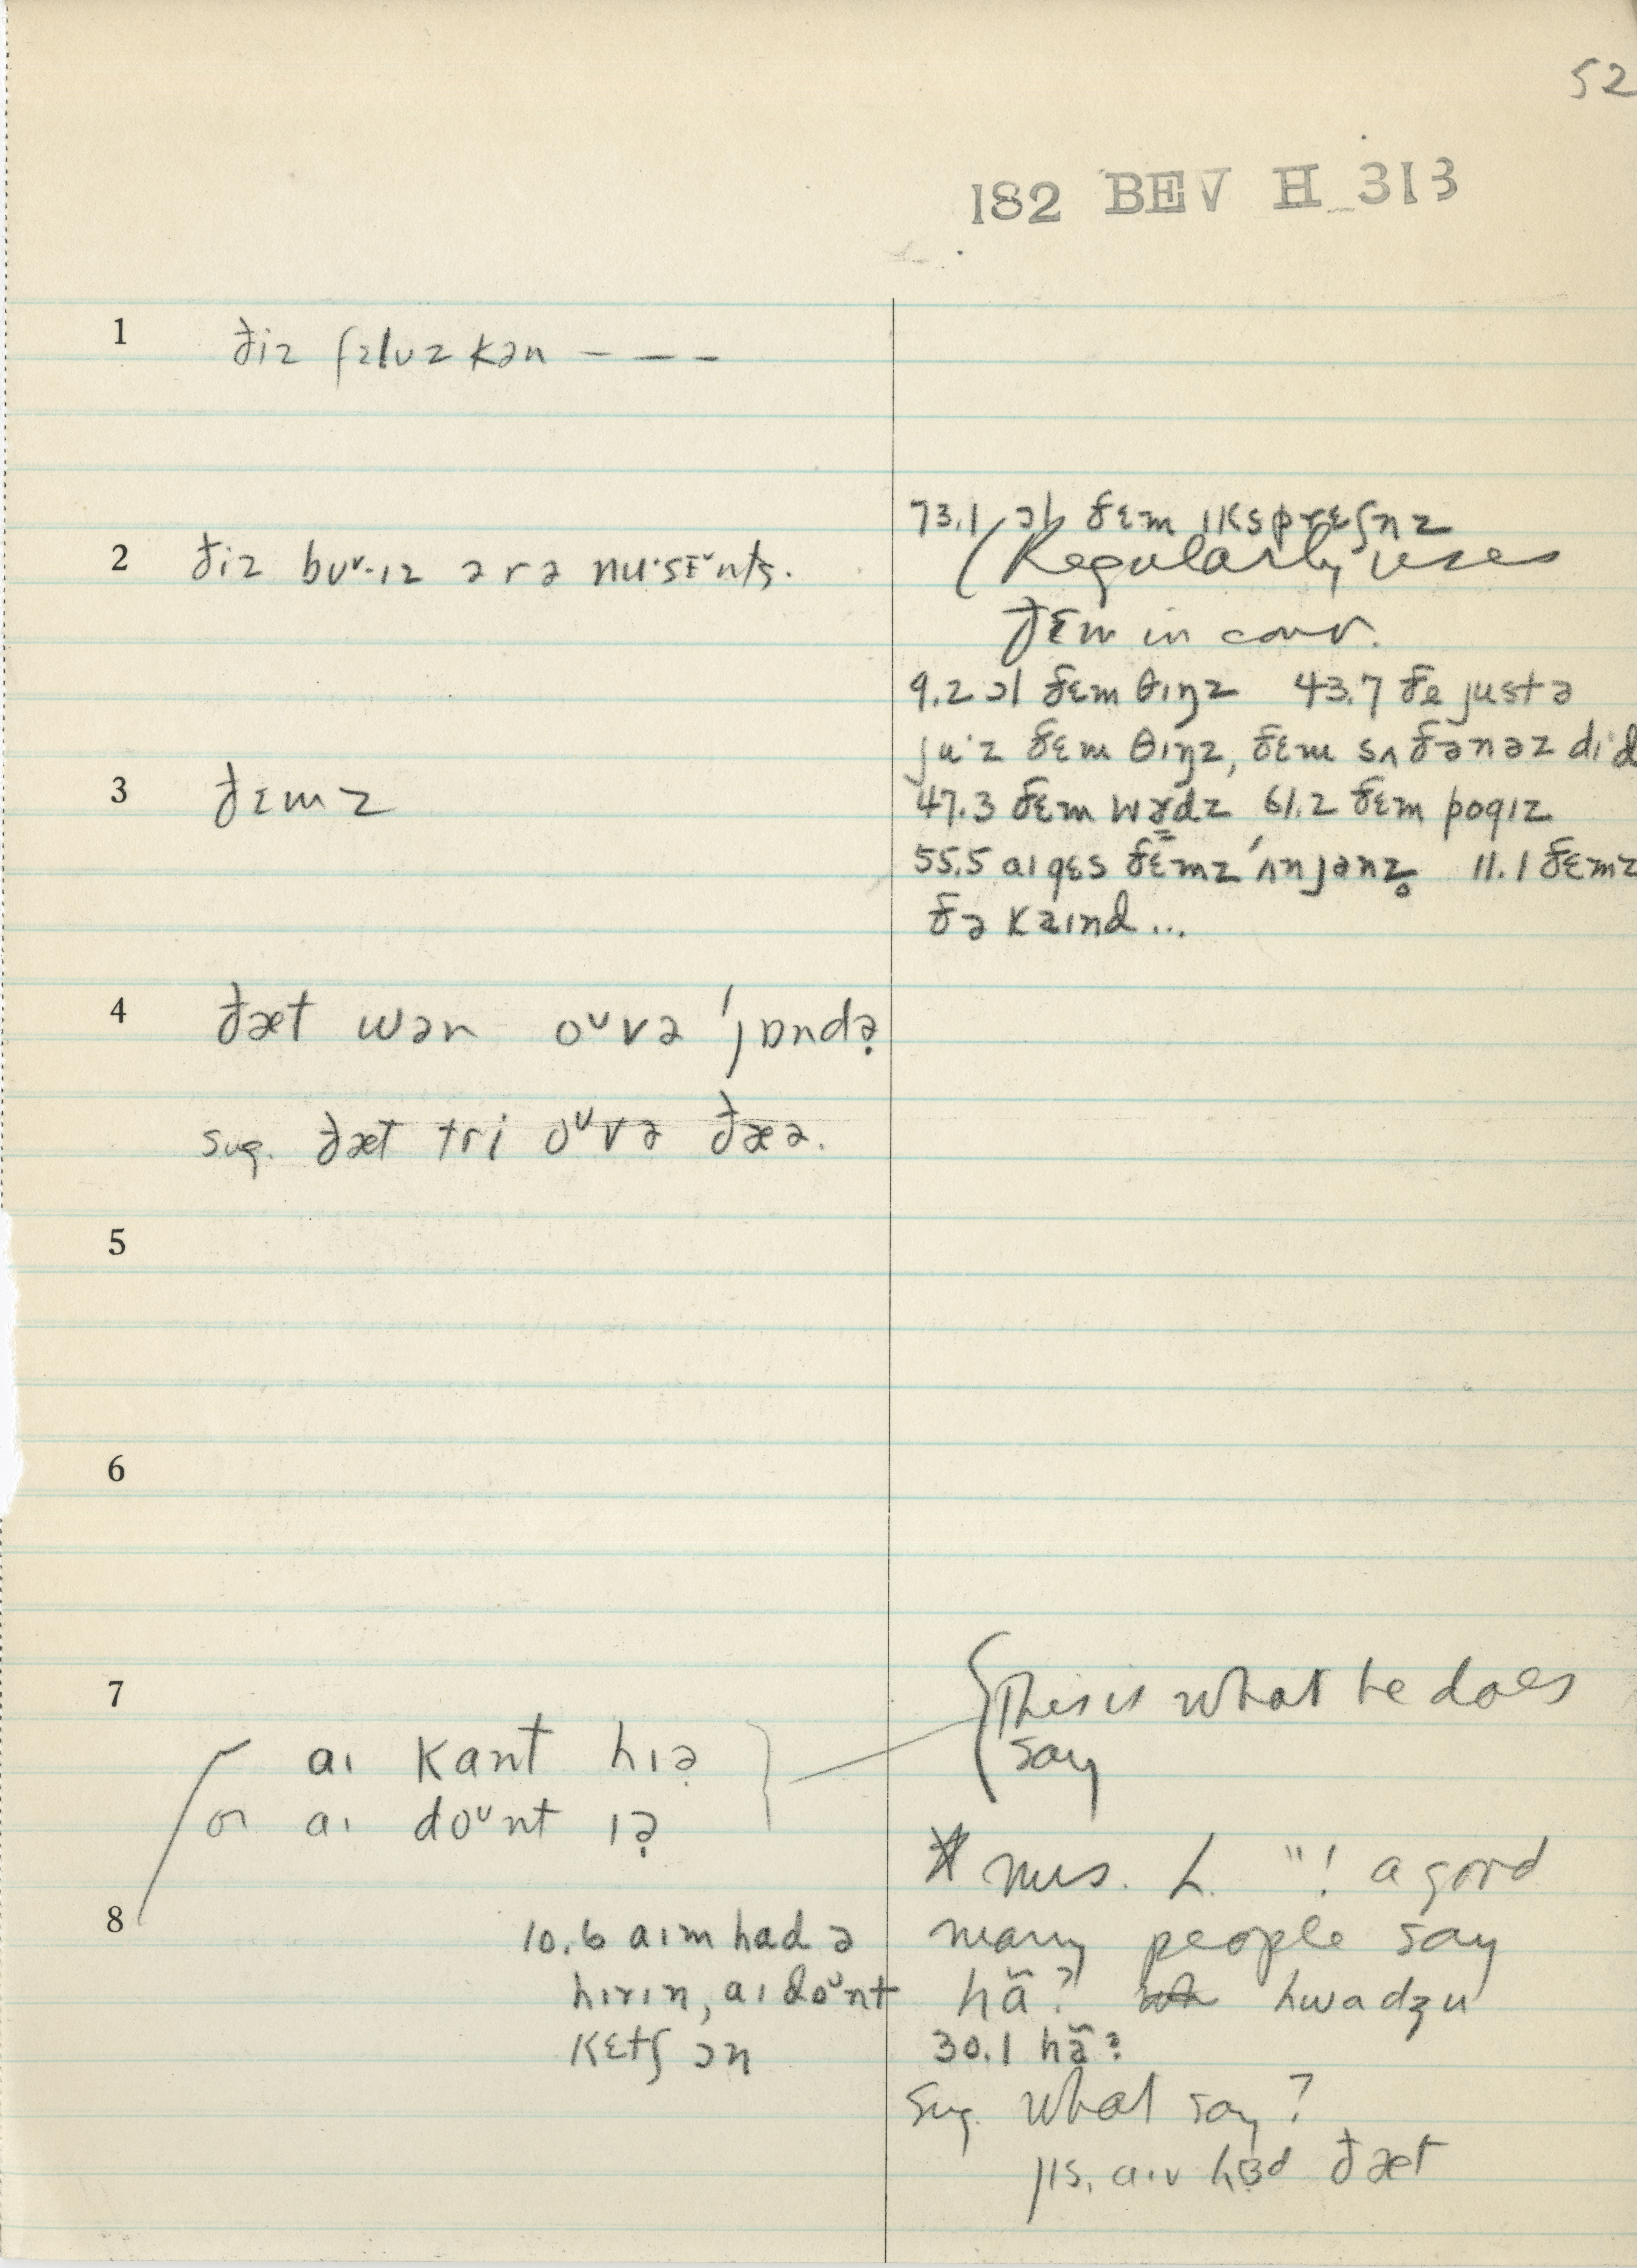 52
182 BEV H 313
1 ðiz fɛluz kən – – –
73.1 ɔl ðɛm ɪksprɛʃnz
2 ðiz bᴜᵛ·ɪz ərə nu·sɛᵛnts.
(Regularly uses
ðɛm in conv.
9.2 ɔl ðɛm θɪŋz 43.7 ðe justə
ju·z ðɛm θɪŋz, ðɛm sʌðənəz di·d
3 ðɛmz
47.3 ðɛm wɚdz 61.2 ðɛm pogɪz
55.5 aɪ gɛs ðɛ̄mz ˈʌnjənz̥ 11.1 ðɛmz
ðə kaɪnd ...
4 ðæt wən oᵘvə ˈjɒndə̣
sug. ðæt tri oᵘvə ðæə.
5
6
7
{This is what he does
say
aɪ kant hɪə̣ }
or aɪ doᵘnt ɪə̣
* Mrs. L. "! a good
8
10.6 aɪm had ə
many people say
hɪrɪn, aɪ doᵘnt
hã? hwadʒu
kɛtʃ ɔn
30.1 hã?
sug. what say?
jɪs, a·ɪv hɜd ðæt